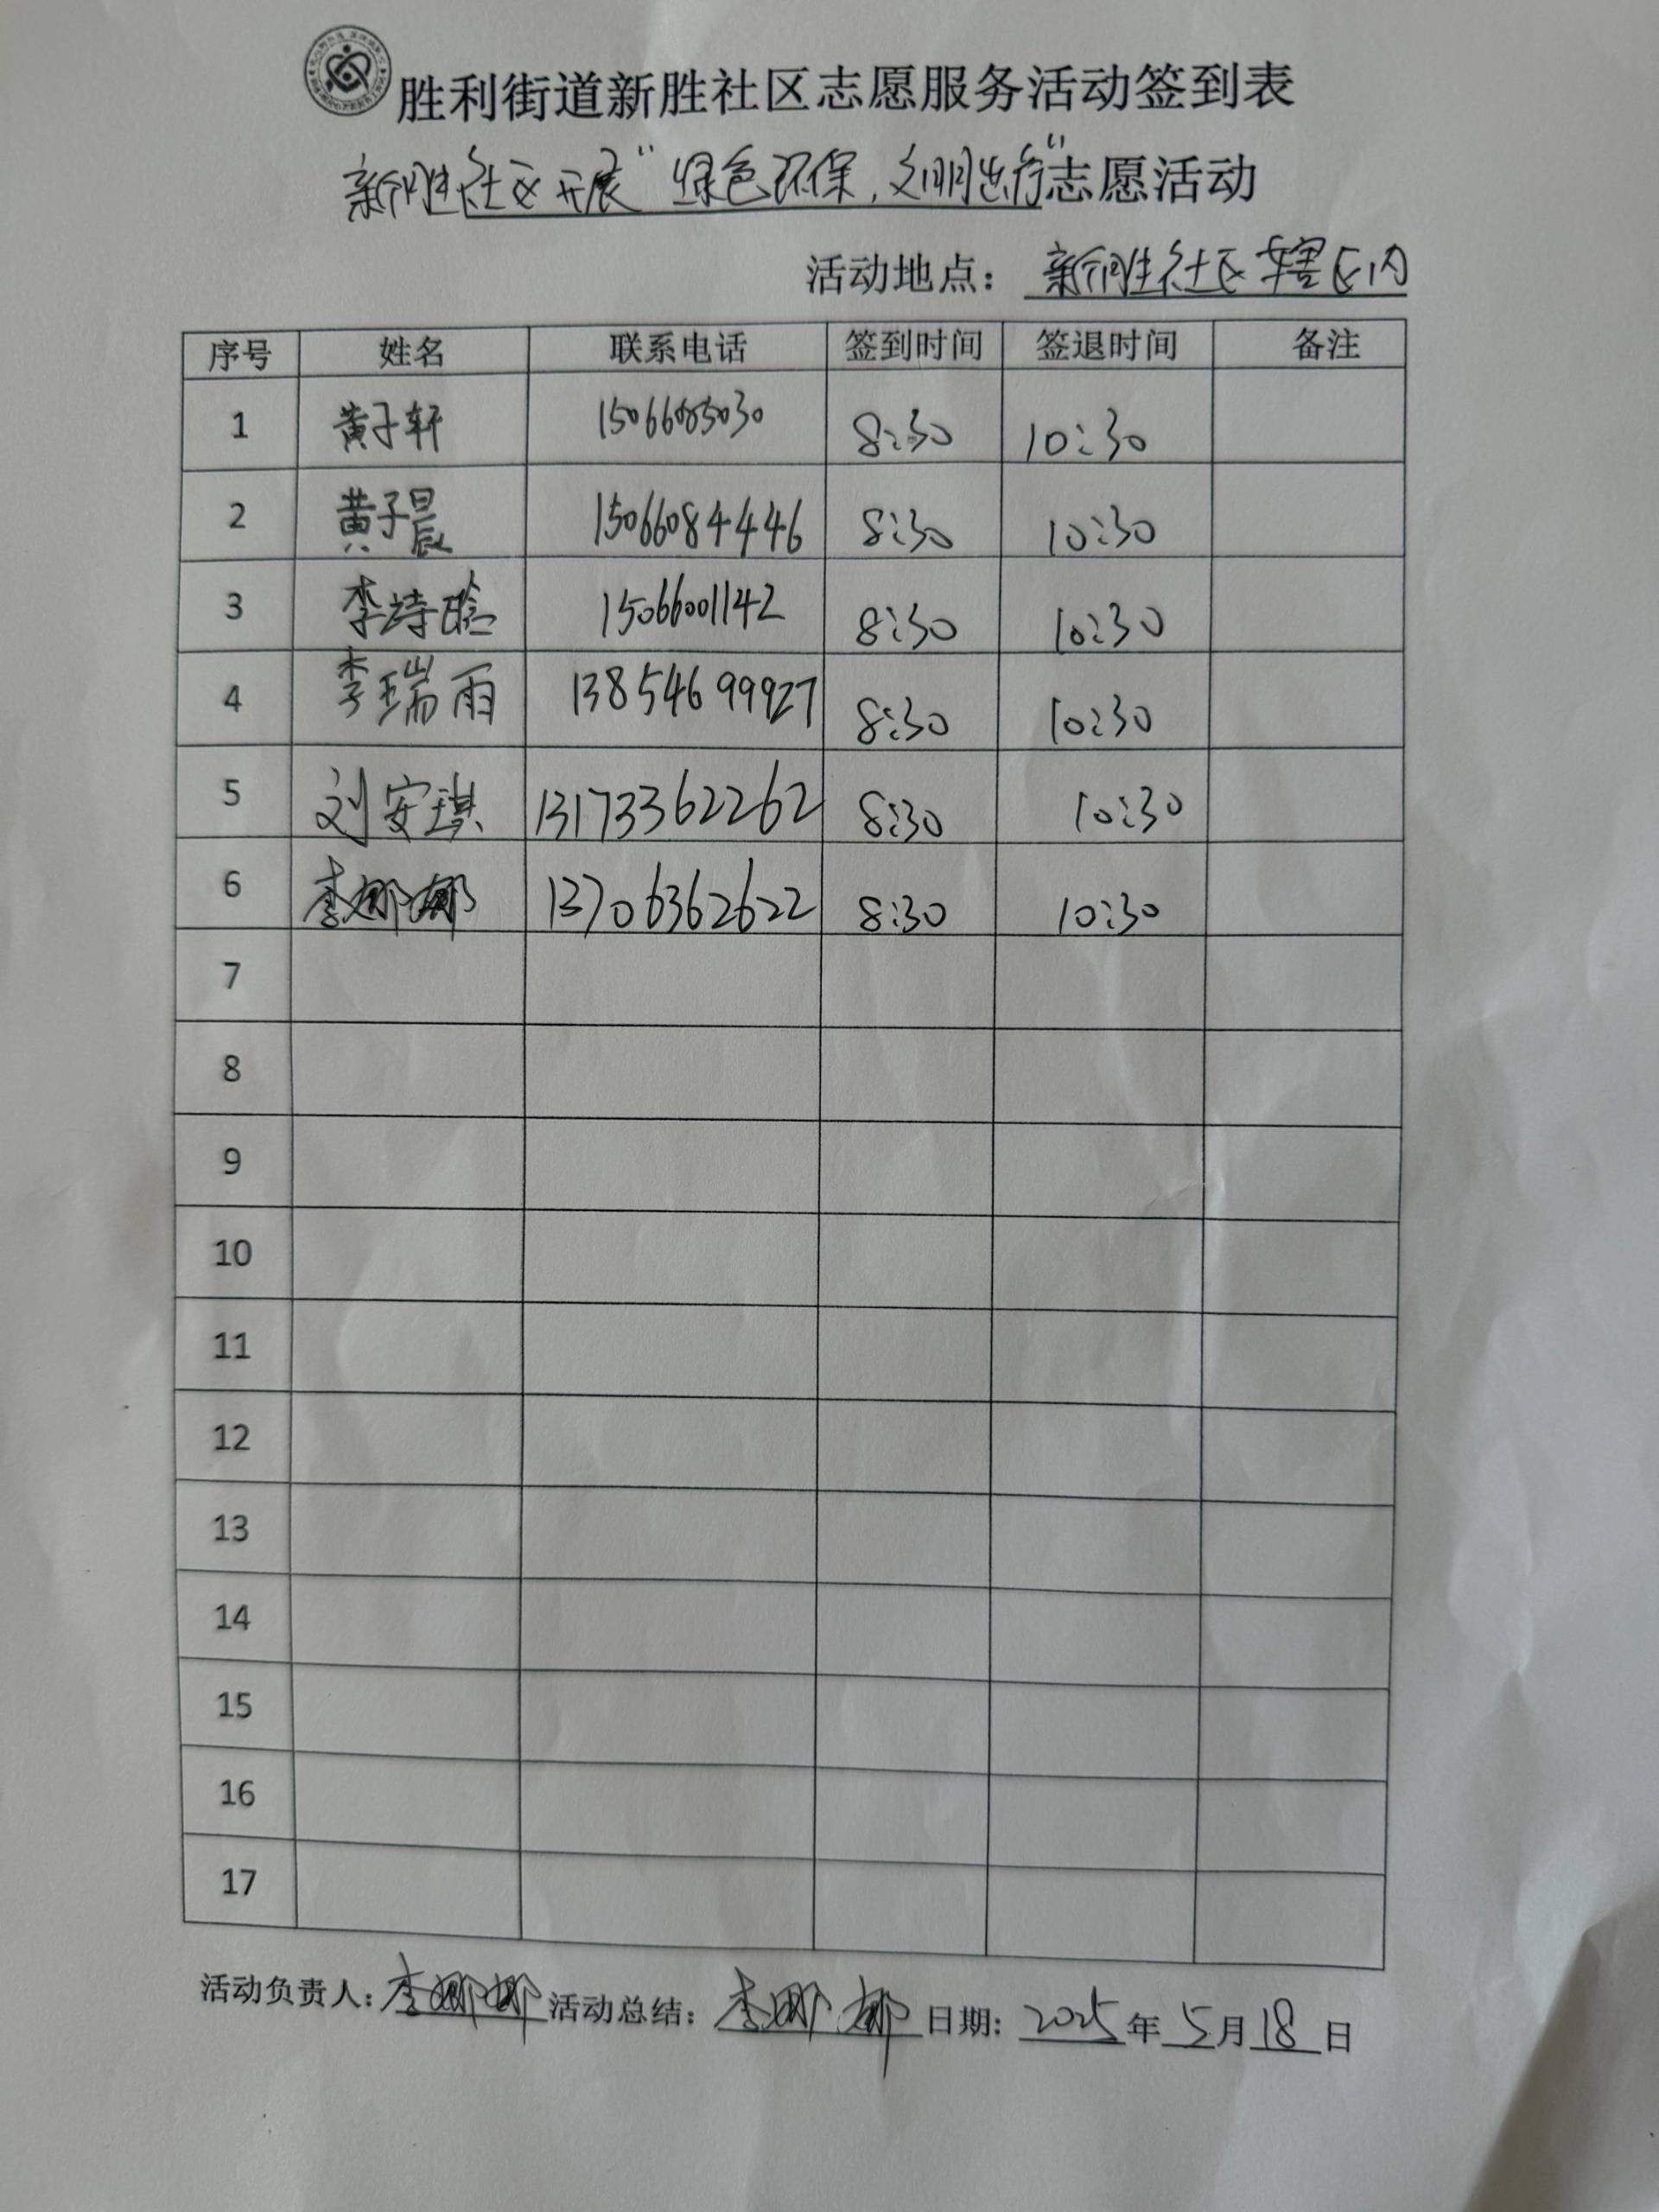 胜利街道新胜社区志愿服务活动签到表
新胜社区开展“绿色环保,文明出行”志愿活动
活动地点: 新胜社区辖区内
序号 姓名 联系电话 签到时间 签退时间 备注
1 黄子轩 8:30 10:30
2 黄子晨 15066084446 8:30 10:30
3 李诗晗 15066001142 8:30 10:30
4 李瑞雨 13854699927 8:30 10:30
5 刘安琪 13173362262 8:30 10:30
6 李娜娜 13706362622 8:30 10:30
7
8
9
10
11
12
13
14
15
16
17
活动负责人: 李娜娜 活动总结: 李娜娜 日期: 2025年5月18日